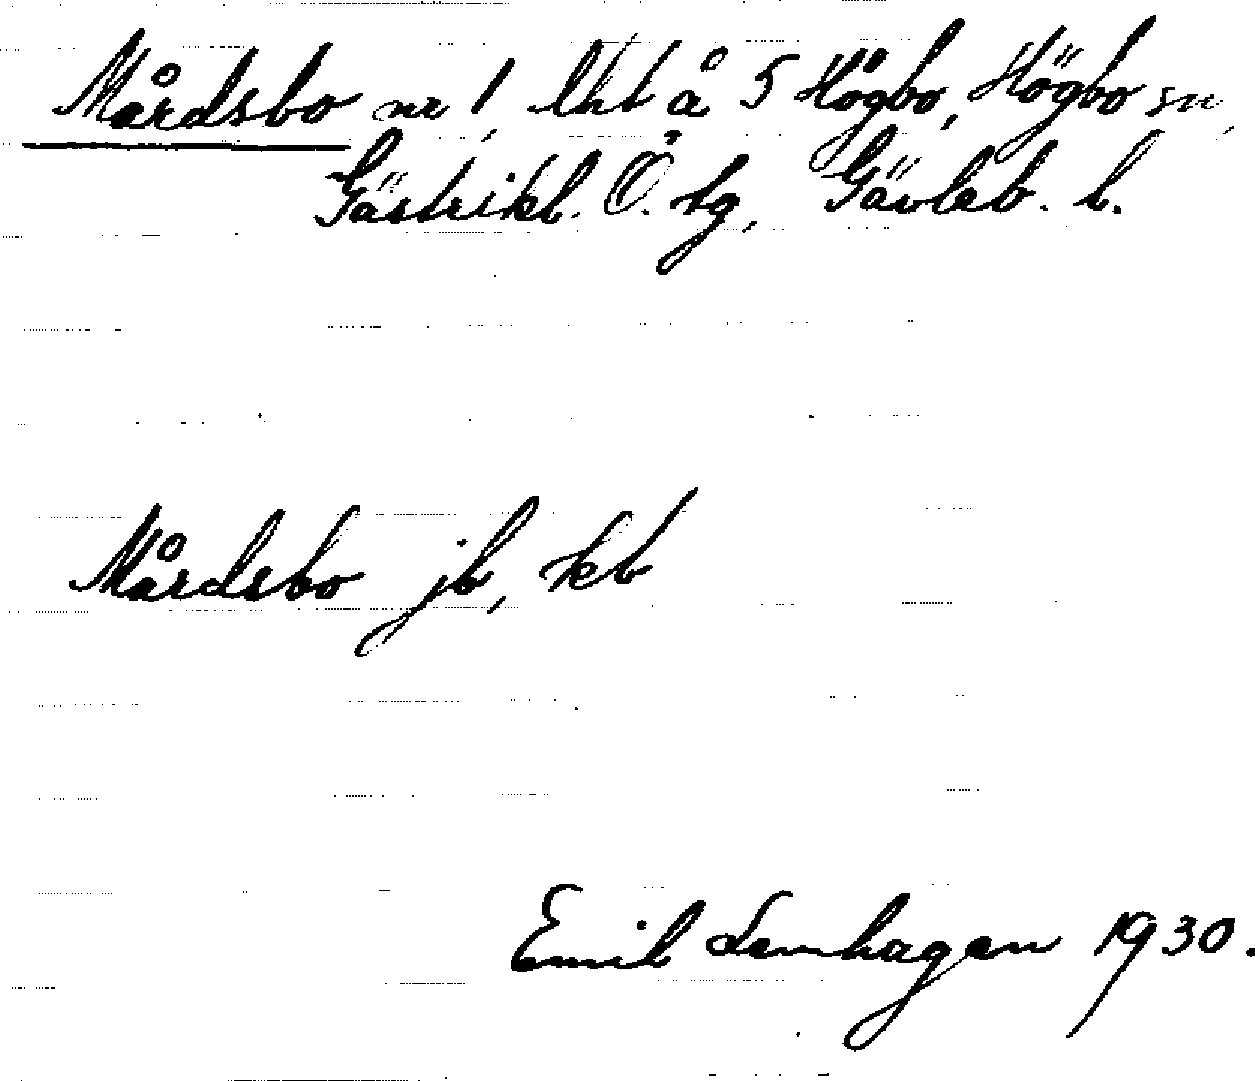 Mårdsbo nr 1, lht å 5 Högbo, Högbo sn,
Gästrikl. Ö. tg, Gävleb. l.
Mårdsbo jb, kb
Emil Lenhagen 1930.